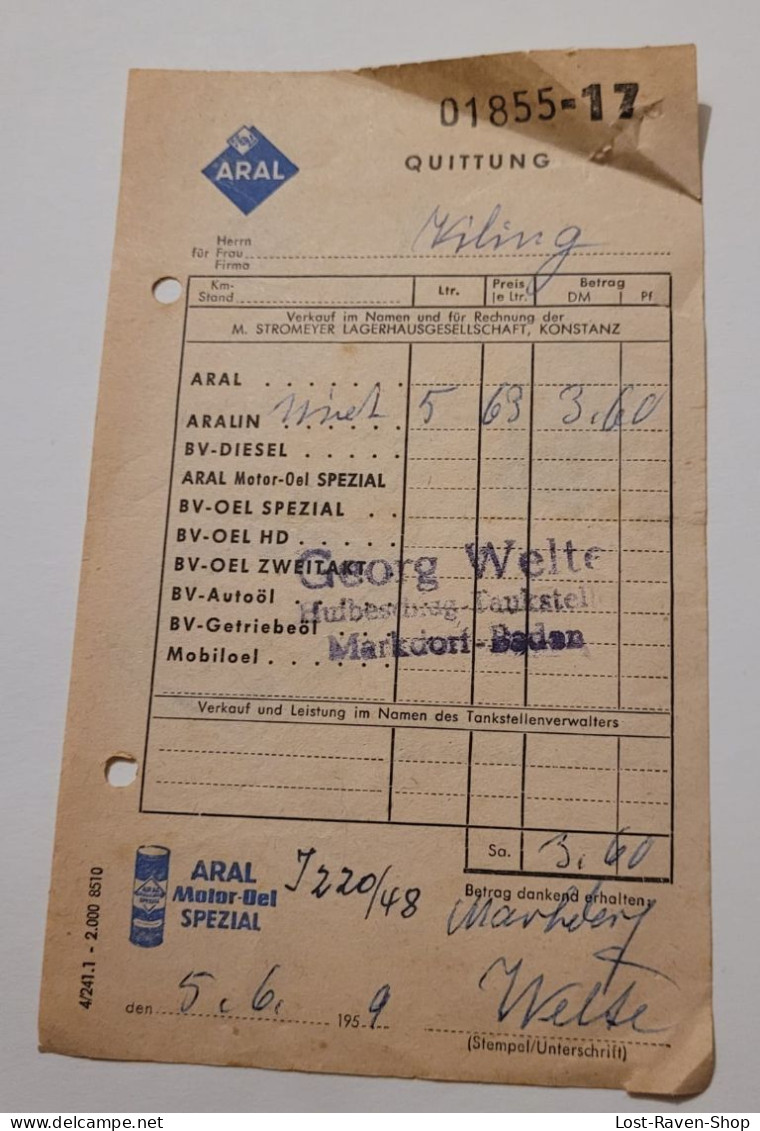 01855-17
ARAL
QUITTUNG
Herrn
für Frau
Firma
Km-Stand Ltr. Preis je Ltr. Betrag DM Pf
Verkauf im Namen und für Rechnung der
M. STROMEYER LAGERHAUSGESELLSCHAFT, KONSTANZ
ARAL
ARALIN 5 63 3.60
BV-DIESEL
ARAL Motor-Oel SPEZIAL
BV-OEL SPEZIAL
BV-OEL HD
BV-OEL ZWEITAKT
BV-Autoöl
BV-Getriebeöl
Mobiloel
Georg Welte
Hufbeschlag-Tankstelle
Markdorf-Baden
Verkauf und Leistung im Namen des Tankstellenverwalters
Sa. 3.60
ARAL
Motor-Oel
SPEZIAL
220/48
Betrag dankend erhalten:
Welte
den 5.6. 1959
(Stempel/Unterschrift)
4/241.1 - 2.000 8510
Lost-Raven-Shop